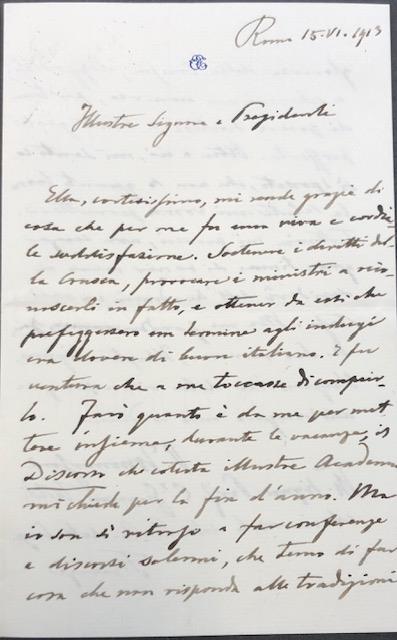 Roma 15. VI. 1913
Illustre Signore e Presidente
Ella, cortesissimo, mi rende grazie di
cosa che per me fu una viva e cordia-
le soddisfazione. Sostenere i diritti del-
la Crusca, provocare i ministri a rico-
noscerli in fatto, e ottener da essi che
prefiggessero un termine agli indugi
era dovere di buon italiano. E fu
ventura che a me toccasse di compier-
lo. Farò quanto è da me per met-
tere insieme, durante le vacanze, il
Discorso che cotesta illustre Accademia
mi chiede per la fin d'anno. Ma
io son sì ritroso a far conferenze
e discorsi solenni, che temo di far
cosa che non risponda alle tradizioni